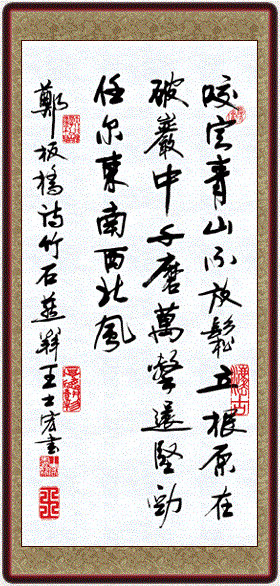 咬定青山不放鬆立根原在
破巖中千磨萬擊還堅勁
任尔東南西北風
鄭板橋詩竹石燕王士書